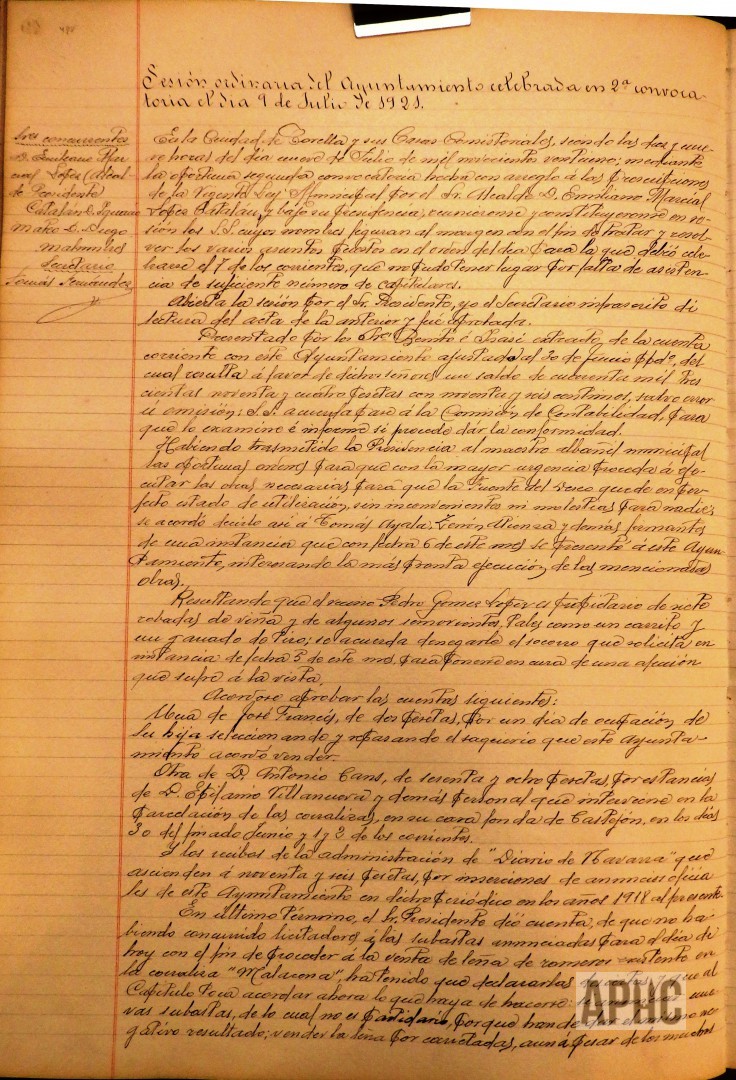 Sesión ordinaria del Ayuntamiento celebrada en 2ª convoca-
toria el dia 9 de Julio de 1921.
Sres concurrentes
D. Emiliano Mar-
cial Lopez Alcal-
de Presidente
Catalán D. Ignacio
Mateo D. Diego
Secretario
Tomás Fernandez
En la Ciudad de Corella y sus Casas Consistoriales, siendo las diez y nue-
ve horas del dia nueve de Julio de mil novecientos veintiuno; mediante
la oportuna segunda convocatoria hecha con arreglo á las prescripciones
de la vigente Ley Municipal por el Sr. Alcalde D. Emiliano Marcial
Lopez Catalán, y bajo su presidencia, reunieronse y constituyeronse en se-
sión los S.S. cuyos nombres figuran al margen con el fin de tratar y resol-
ver los varios asuntos puestos en el orden del dia para la que debió cele-
brarse el 7 de los corrientes, que no pudo tener lugar por falta de asisten-
cia de suficiente número de capitulares.
Abierta la sesión por el Sr. Presidente, yo el Secretario infrascrito di
lectura del acta de la anterior y fué aprobada.
Presentado por los Sres Benito é Isasi extracto de la cuenta
corriente con este Ayuntamiento ajustada al 30 de junio ppdo, del
cual resulta á favor de dichos señores un saldo de cuarenta mil tres
cientas noventa y cuatro pesetas con noventa y seis centimos, salvo error
ú omisión; S.S. acuerda pase á la Comisión de Contabilidad, para
que lo examine é informe si procede dar la conformidad.
Habiendo trasmitido la Presidencia al maestro albañil municipal
las oportunas ordenes para que con la mayor urgencia proceda á eje-
cutar las obras necesarias para que la Fuente del quede en per-
fecto estado de utilización, sin inconvenientes ni molestias para nadie;
se acordó decirlo asi á Tomás Ayala, Zenón Atienza y demás firmantes
de una instancia que con fecha 6 de este mes se presentó á este Ayun-
tamiento, interesando la más pronta ejecución de las mencionadas
obras.
Resultando que el vecino Pedro Gomez Lopez es propietario de ocho
robadas de viña y de algunos semovientes, tales como un carrito y
un ganado de tiro; se acuerda denegarle el socorro que solicita en
instancia de fecha 5 de este mes, para ponerse en cura de una afección
que sufre á la vista.
Acordose aprobar las cuentas siguientes:
Una de José Francés, de dos pesetas, por un dia de ocupación de
su hija seleccionando y repasando el saquerio que este Ayunta-
miento acordó vender.
Otra de D. Antonio Cans, de sesenta y ocho pesetas, por estancias
de D. Epifanio Villanueva y demás personal que interviene en la
parcelación de las corralizas, en su casa fonda de Castejón, en los dias
30 del finado Junio y 1 y 2 de los corrientes.
Y los recibos de la administración de "Diario de Navarra" que
ascienden á noventa y seis pesetas, por inserciones de anuncios oficia-
les de este Ayuntamiento en dicho periódico en los años 1918 al presente.
En último término, el Sr. Presidente dió cuenta, de que no ha-
biendo concurrido licitadores á las subastas anunciadas para el dia de
hoy con el fin de proceder á la venta de leña de romeros existente en
la corraliza "Malacena", ha tenido que declararlas desiertas y que al
Capítulo toca acordar ahora lo que haya de hacerse: nue-
vas subastas, de lo cual no es partidario, porque han de ne-
gativo resultado; vender la leña por carretadas, aun á pesar de los muchos
APHC